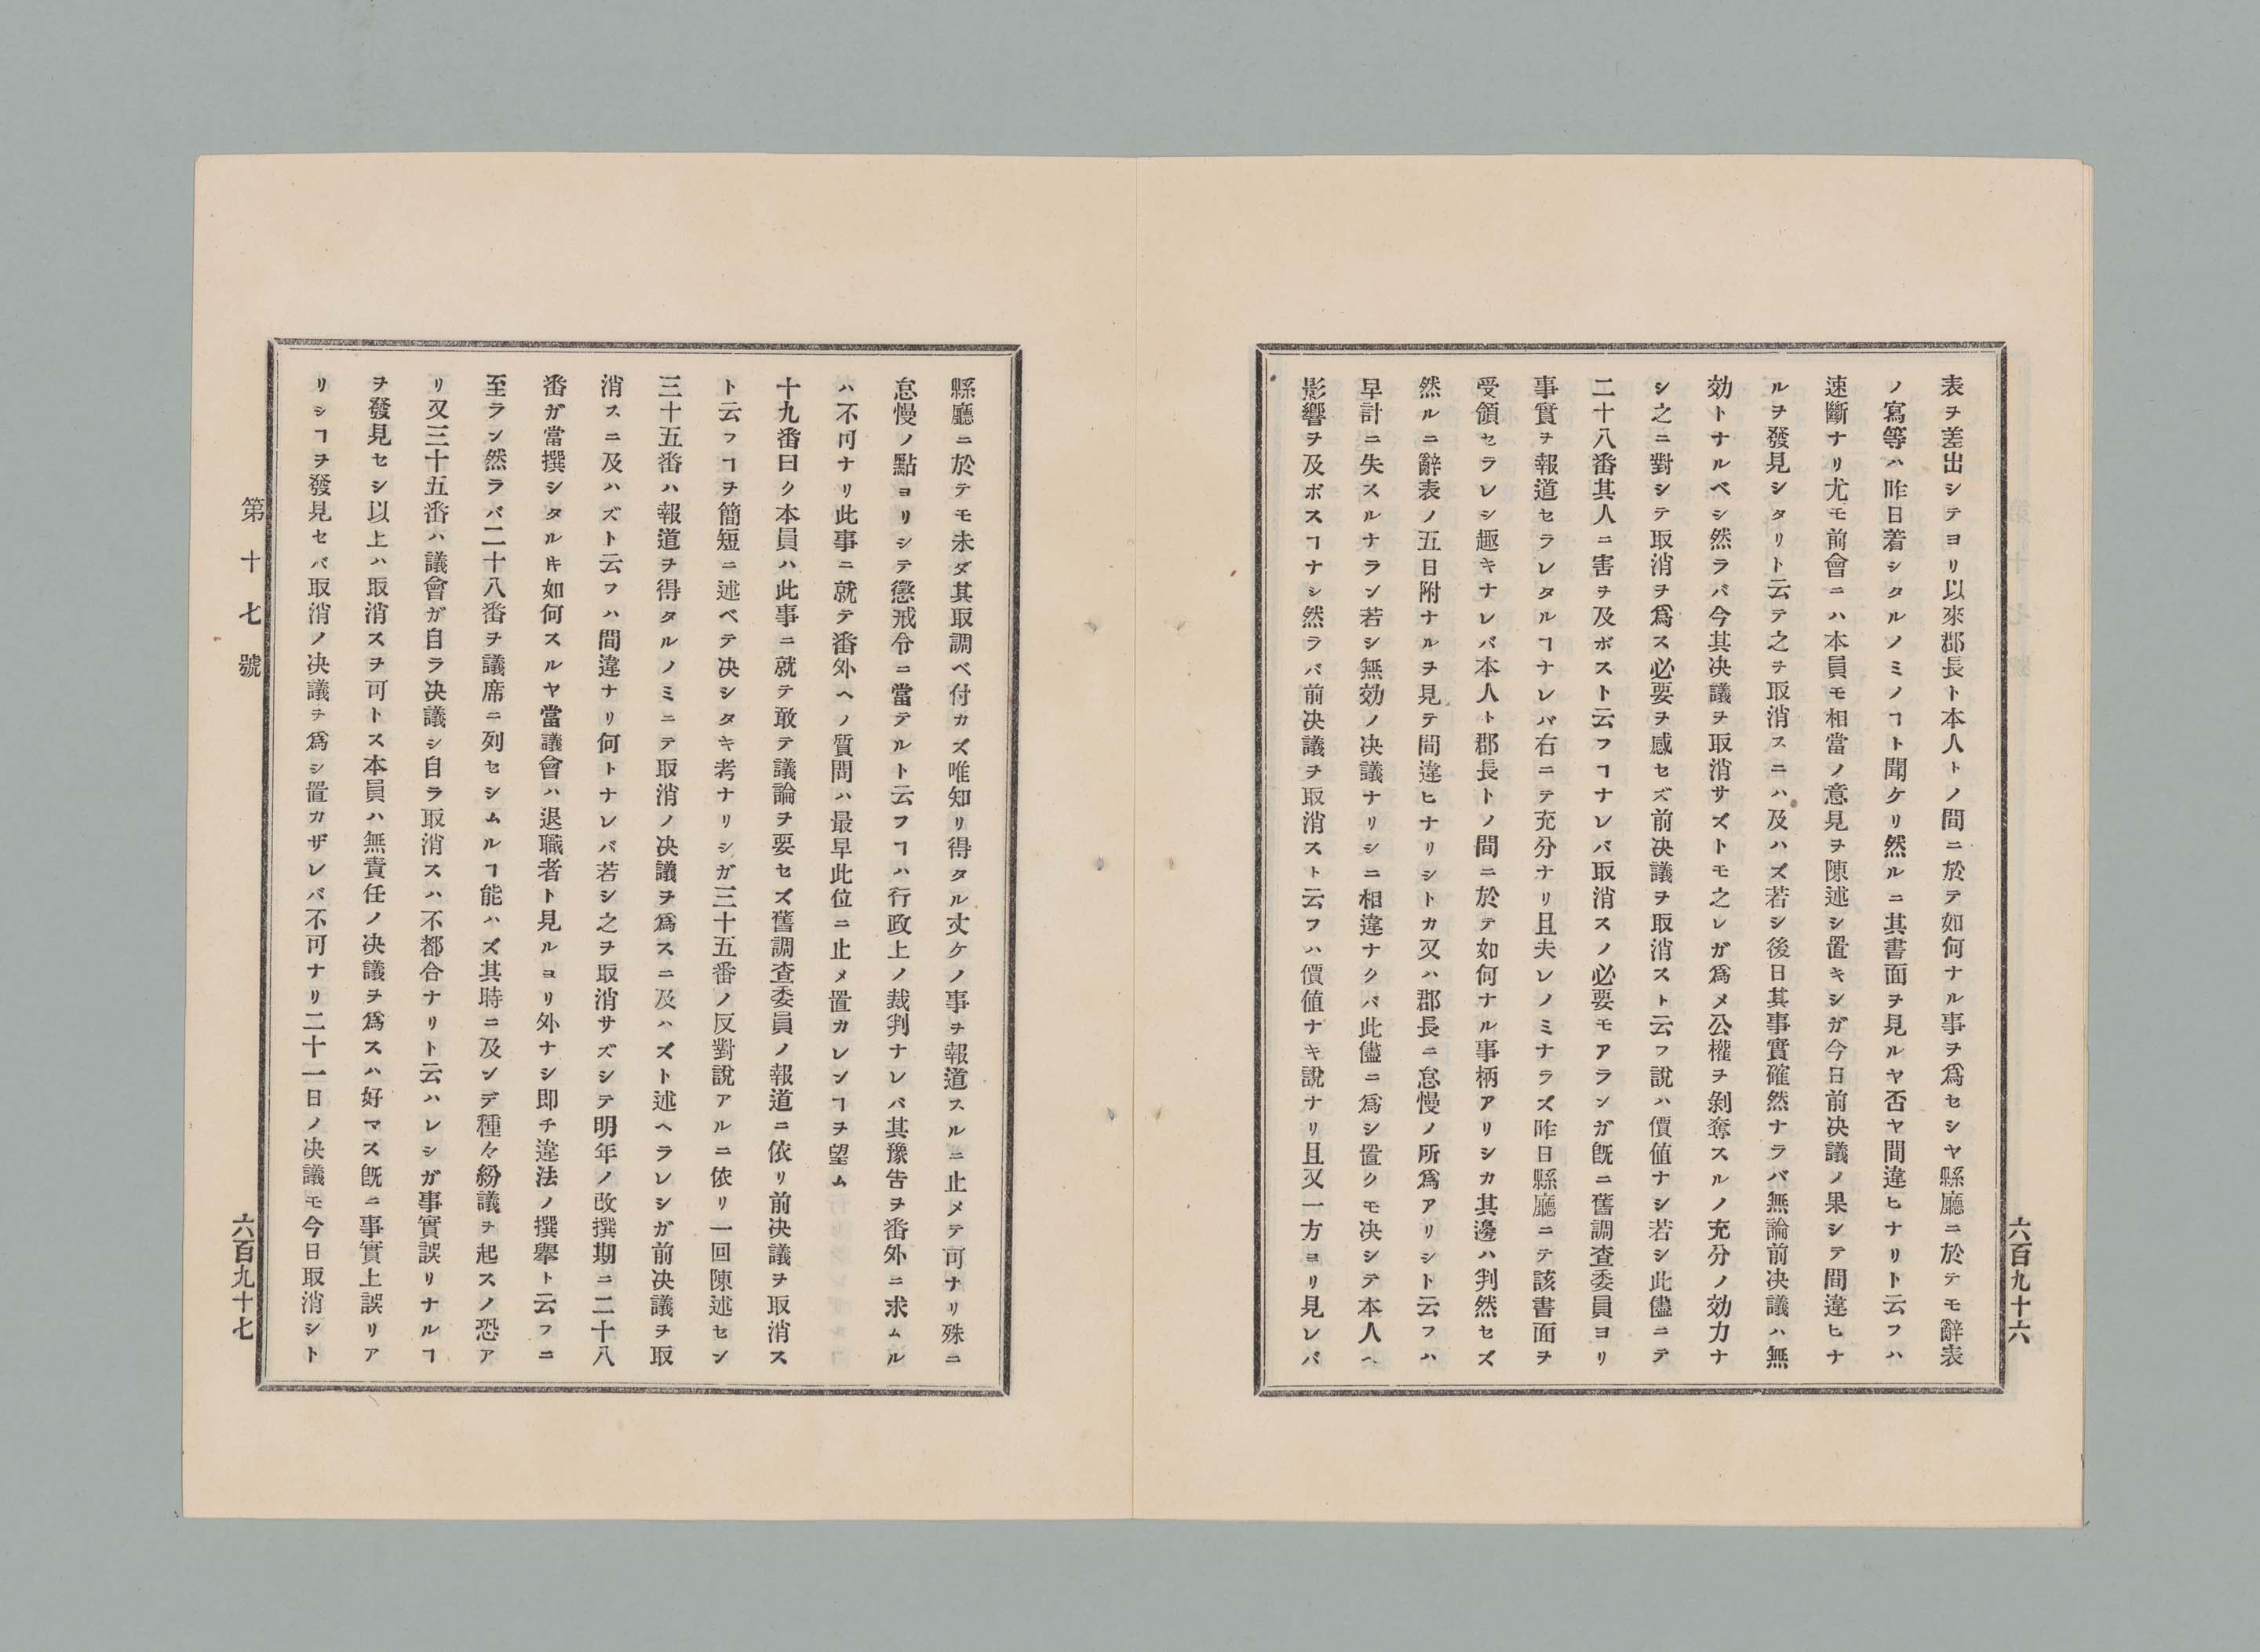 六百九十六
表ヲ差出シテヨリ以來郡長ト本人トノ間ニ於テ如何ナル事ヲ爲セシヤ縣廳ニ於テモ辭表
ノ寫等ハ昨日着シタルノミノヿト聞ケリ然ルニ其書面ヲ見ルヤ否ヤ間違ヒナリト云フハ
速斷ナリ尤モ前會ニハ本員モ相當ノ意見ヲ陳述シ置キシガ今日前决議ノ果シテ間違ヒナ
ルヲ發見シタリト云テ之ヲ取消スニハ及ハズ若シ後日其事實確然ナラバ無論前决議ハ無
効トナルベシ然ラバ今其决議ヲ取消サズトモ之レガ爲メ公權ヲ剝奪スルノ充分ノ効力ナ
シ之ニ對シテ取消ヲ爲ス必要ヲ感セズ前决議ヲ取消スト云フ說ハ價値ナシ若シ此儘ニテ
二十八番其人ニ害ヲ及ボスト云フヿナレバ取消スノ必要モアランガ旣ニ舊調査委員ヨリ
事實ヲ報道セラレタルヿナレバ右ニテ充分ナリ且夫レノミナラズ昨日縣廳ニテ該書面ヲ
受領セラレシ趣キナレバ本人ト郡長トノ間ニ於テ如何ナル事柄アリシカ其邊ハ判然セズ
然ルニ辭表ノ五日附ナルヲ見テ間違ヒナリシトカ又ハ郡長ニ怠慢ノ所爲アリシト云フハ
早計ニ失スルナラン若シ無効ノ决議ナリシニ相違ナクバ此儘ニ爲シ置クモ决シテ本人ヘ
影響ヲ及ボスヿナシ然ラバ前决議ヲ取消スト云フハ價値ナキ說ナリ且又一方ヨリ見レバ
縣廳ニ於テモ未ダ其取調ベ付カズ唯知リ得タル丈ケノ事ヲ報道スルニ止メテ可ナリ殊ニ
怠慢ノ點ヨリシテ懲戒令ニ當テルト云フヿハ行政上ノ裁判ナレバ其豫吿ヲ番外ニ求ムル
ハ不可ナリ此事ニ就テ番外ヘノ質問ハ最早此位ニ止メ置カレンヿヲ望ム
十九番曰ク本員ハ此事ニ就テ敢テ議論ヲ要セズ舊調査委員ノ報道ニ依リ前决議ヲ取消ス
ト云フヿヲ簡短ニ述ベテ决シタキ考ナリシガ三十五番ノ反對說アルニ依リ一回陳述セン
三十五番ハ報道ヲ得タルノミニテ取消ノ决議ヲ爲スニ及ハズト述ヘラレシガ前决議ヲ取
消スニ及ハズト云フハ間違ナリ何トナレバ若シ之ヲ取消サズシテ明年ノ改撰期ニ二十八
番ガ當撰シタルキ如何スルヤ當議會ハ退職者ト見ルヨリ外ナシ即チ違法ノ撰擧ト云フニ
至ラン然ラバ二十八番ヲ議席ニ列セシムルヿ能ハズ其時ニ及ンデ種々紛議ヲ起スノ恐ア
リ又三十五番ハ議會ガ自ラ决議シ自ラ取消スハ不都合ナリト云ハレシガ事實誤リナルヿ
ヲ發見セシ以上ハ取消スヲ可トス本員ハ無責任ノ决議ヲ爲スハ好マス旣ニ事實上誤リア
リシヿヲ發見セバ取消ノ决議ヲ爲シ置カザレバ不可ナリ二十一日ノ决議モ今日取消シト
第十七號
六百九十七